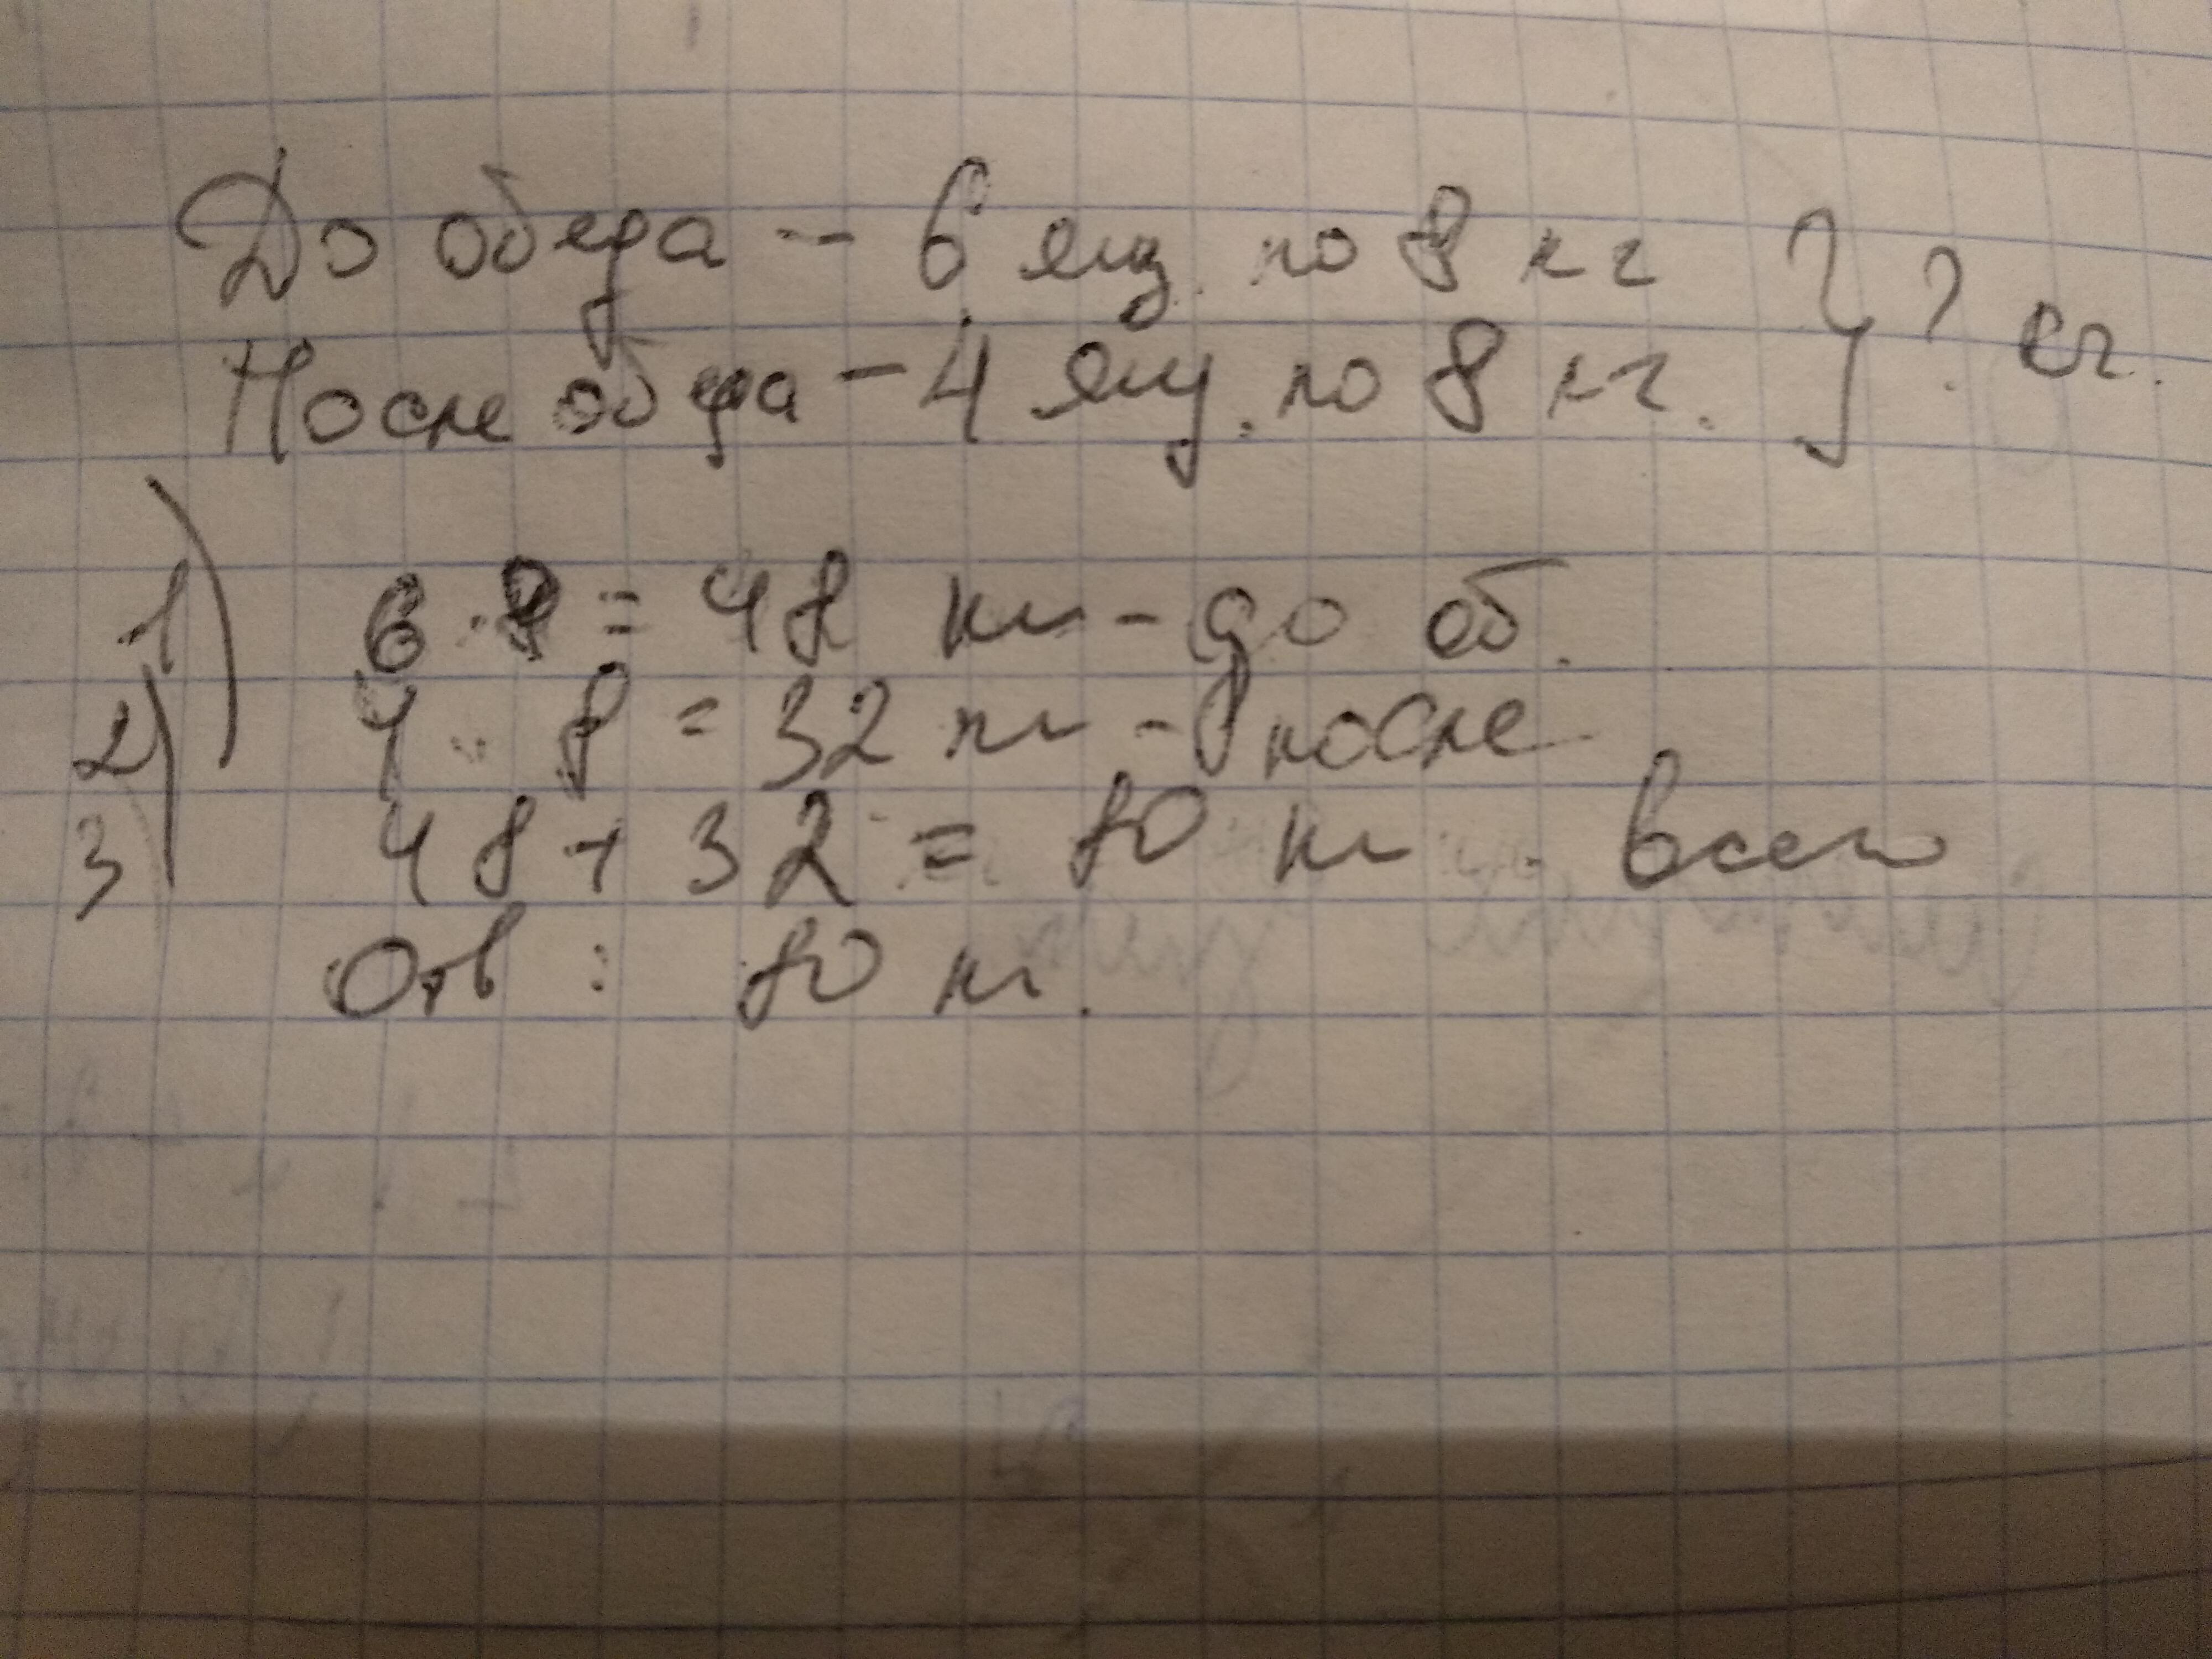 До обеда - 6 ящ. по 8 кг } ? кг.
После обеда - 4 ящ. по 8 кг.
1) 6 · 8 = 48 кг - до об.
2) 4 · 8 = 32 кг - после
3) 48 + 32 = 80 кг - всего
Отв : 80 кг.